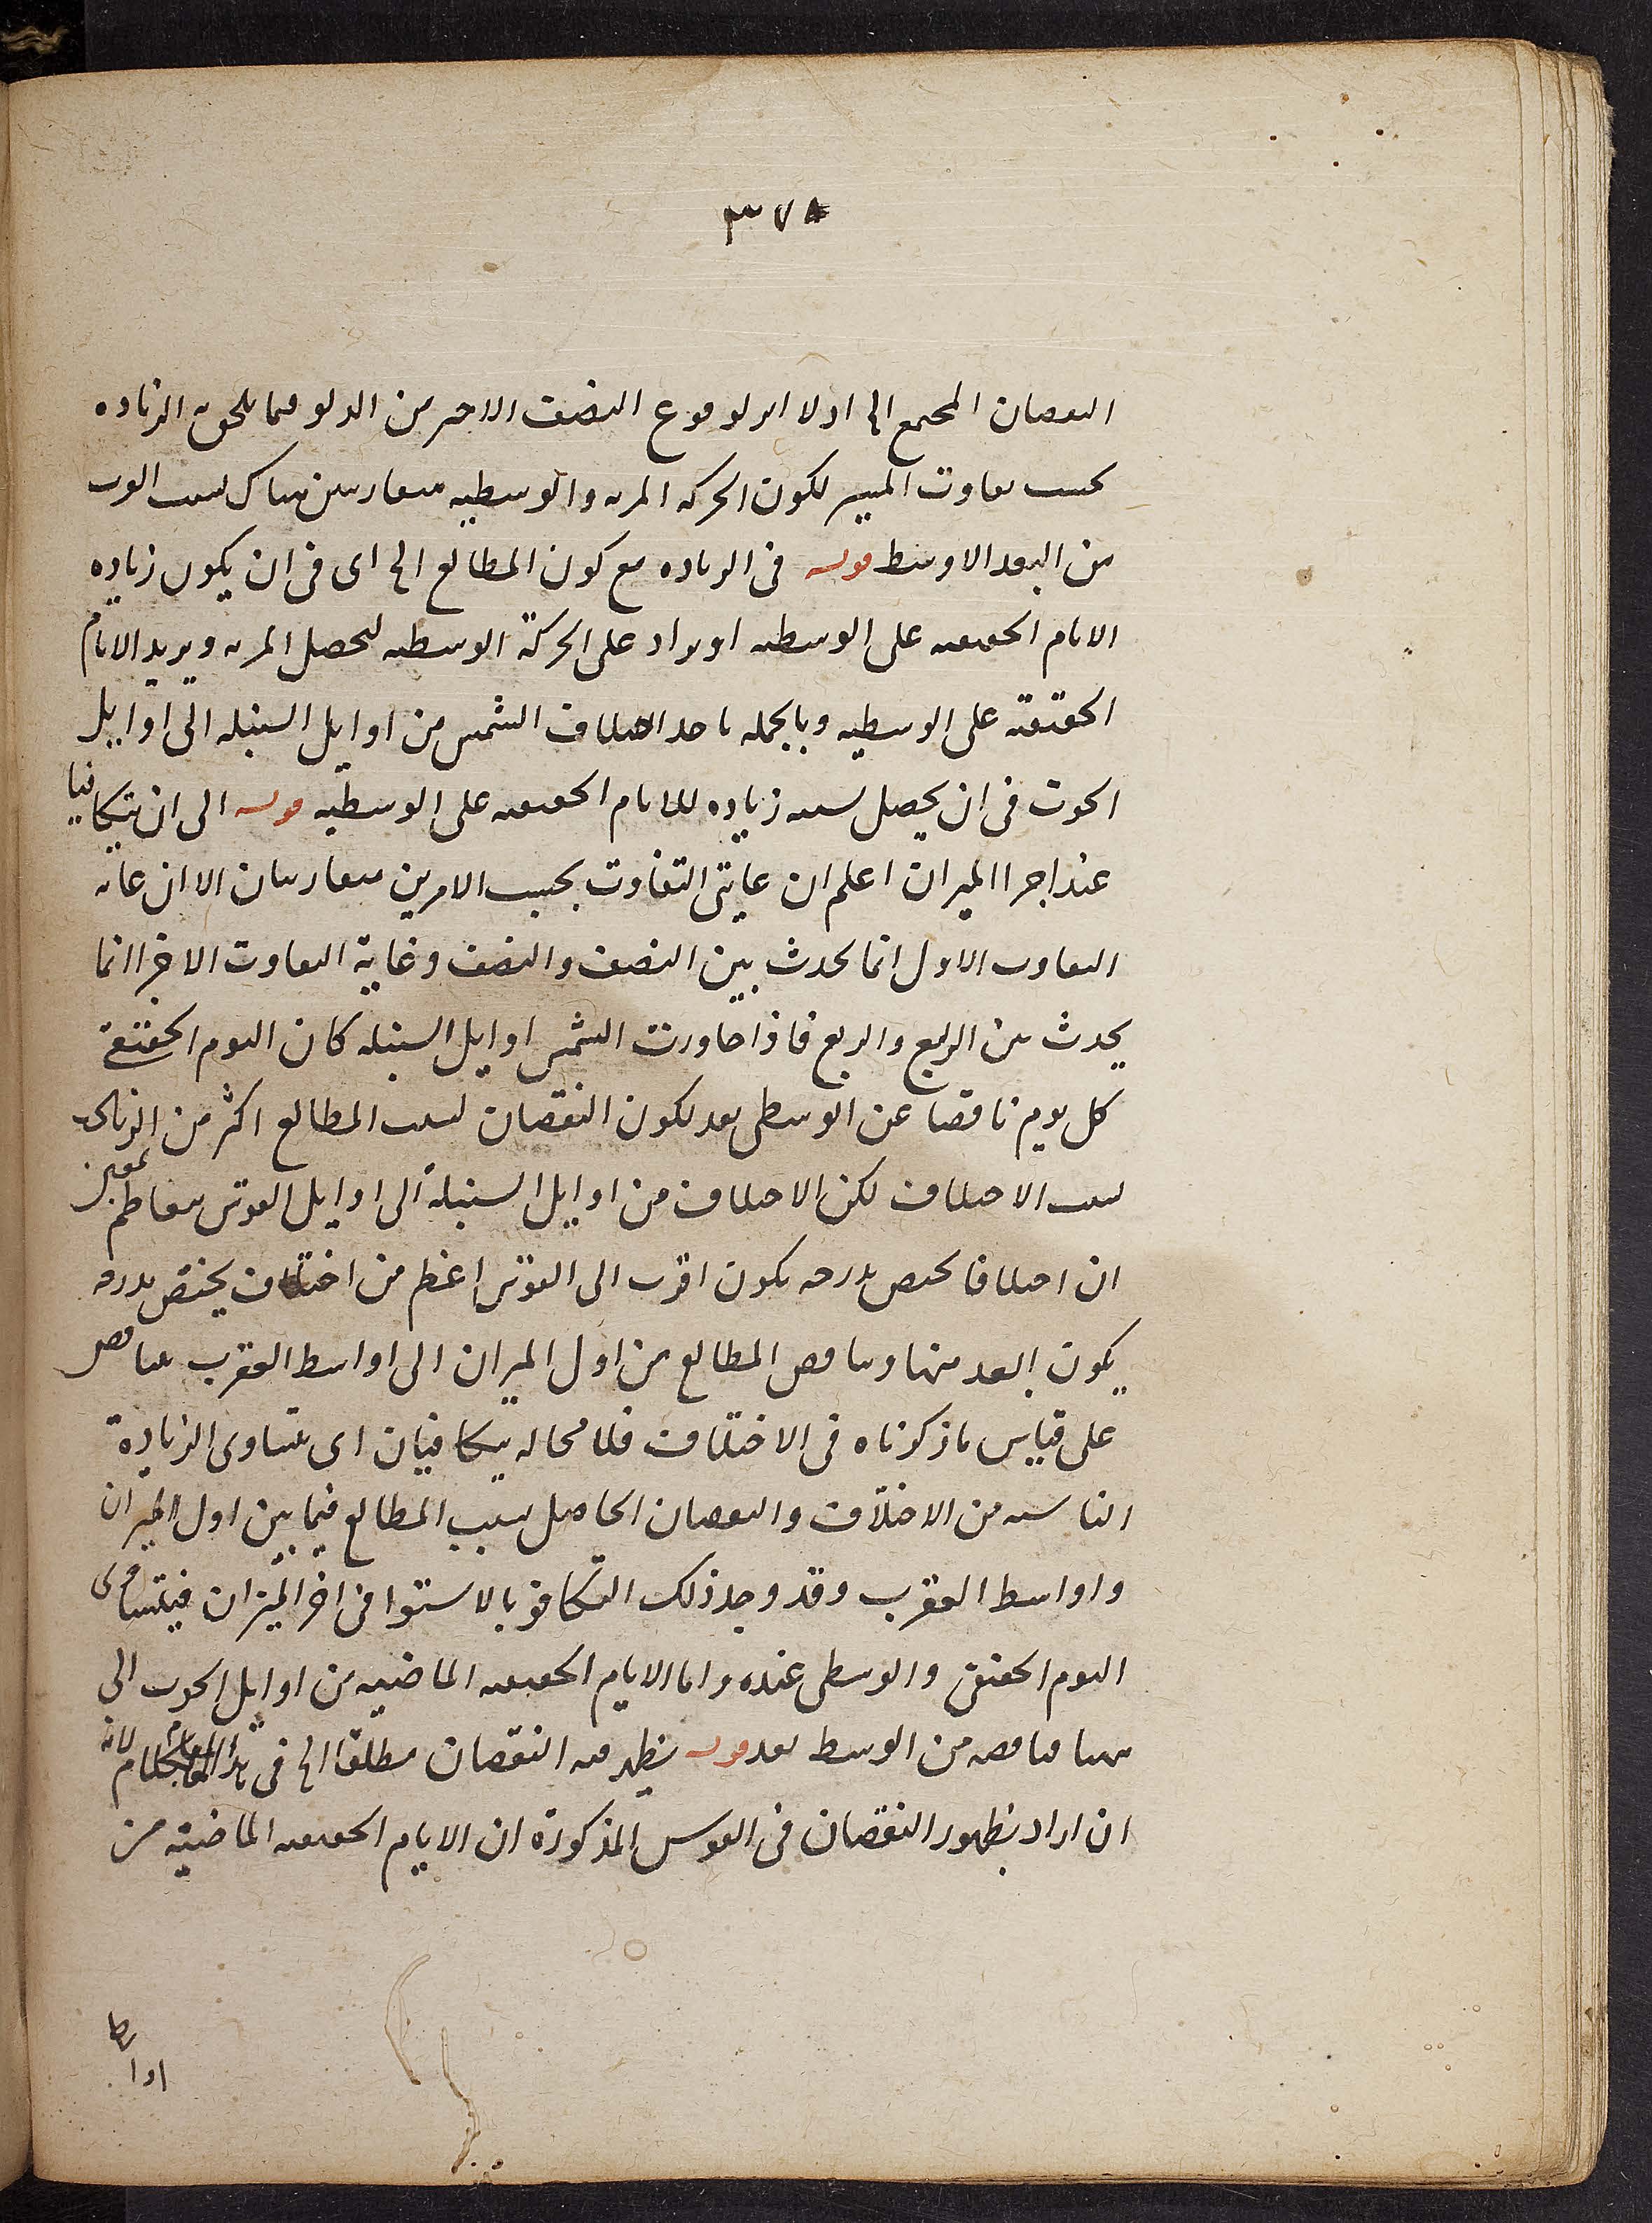 ٣٧٨
النقصان المجتمع الخ اولا اثر لوقوع النصف الاخير من الدلو فيما يلحق به الزياده
بحسب تفاوت المسير لكون الحركه المرئيه والوسطيه متقاربتين هناك لسبب القرب
من البعد الاوسط قوله فى الزياده مع كون المطالع الخ اى فى ان يكون زياده
الايام الحقيقيه على الوسطيه او يزاد على الحركة الوسطيه لتحصل المرئيه ويزيد الايام
الحقيقيه على الوسطيه وبالجمله ياخذ اختلاف الشمس من اوايل السنبله الى اوايل
الحوت فى ان يحصل بسببه زياده للايام الحقيقيه على الوسطيه قوله الى ان يتكافيا
عند اجزا الميزان اعلم ان غايتى التفاوت بحسب الامرين متقاربتان الا ان غايه
التفاوت الاول انما يحدث بين النصف والنصف وغاية التفاوت الاخر انما
يحدث بين الربع والربع فاذا جاوزت الشمس اوايل السنبله كان اليوم الحقيقى
كل يوم ناقصا عن الوسطى بعد لكون النقصان لسبب المطالع اكثر من الزيادة
لسبب الاختلاف لكن الاختلاف من اوايل السنبلة الى اوايل القوس يتعاظم بمعنى
ان اختلافا يختص بدرجه يكون اقرب الى القوس اعظم من اختلاف يختص بدرجه
يكون ابعد منها وتناقص المطالع من اول الميزان الى اواسط العقرب يتناقص
على قياس ما ذكرناه فى الاختلاف فلا محاله يتكافيان اى يتساوى الزيادة
الناشيه من الاختلاف والنقصان الحاصل بسبب المطالع فيما بين اول الميزان
واواسط العقرب وقد وجد ذلك التكافو بالاستقرا فى اخر الميزان فيتساوى
اليوم الحقيقى والوسطى عنده واما الايام الحقيقيه الماضيه من اوايل الحوت الى
ههنا فناقصه من الوسط بعد قوله يظهر فيه النقصان مطلقا الخ فى هذا المقام كلام لانه
ان اراد بظهور النقصان فى القوس المذكورة ان الايام الحقيقيه الماضية من
اوا